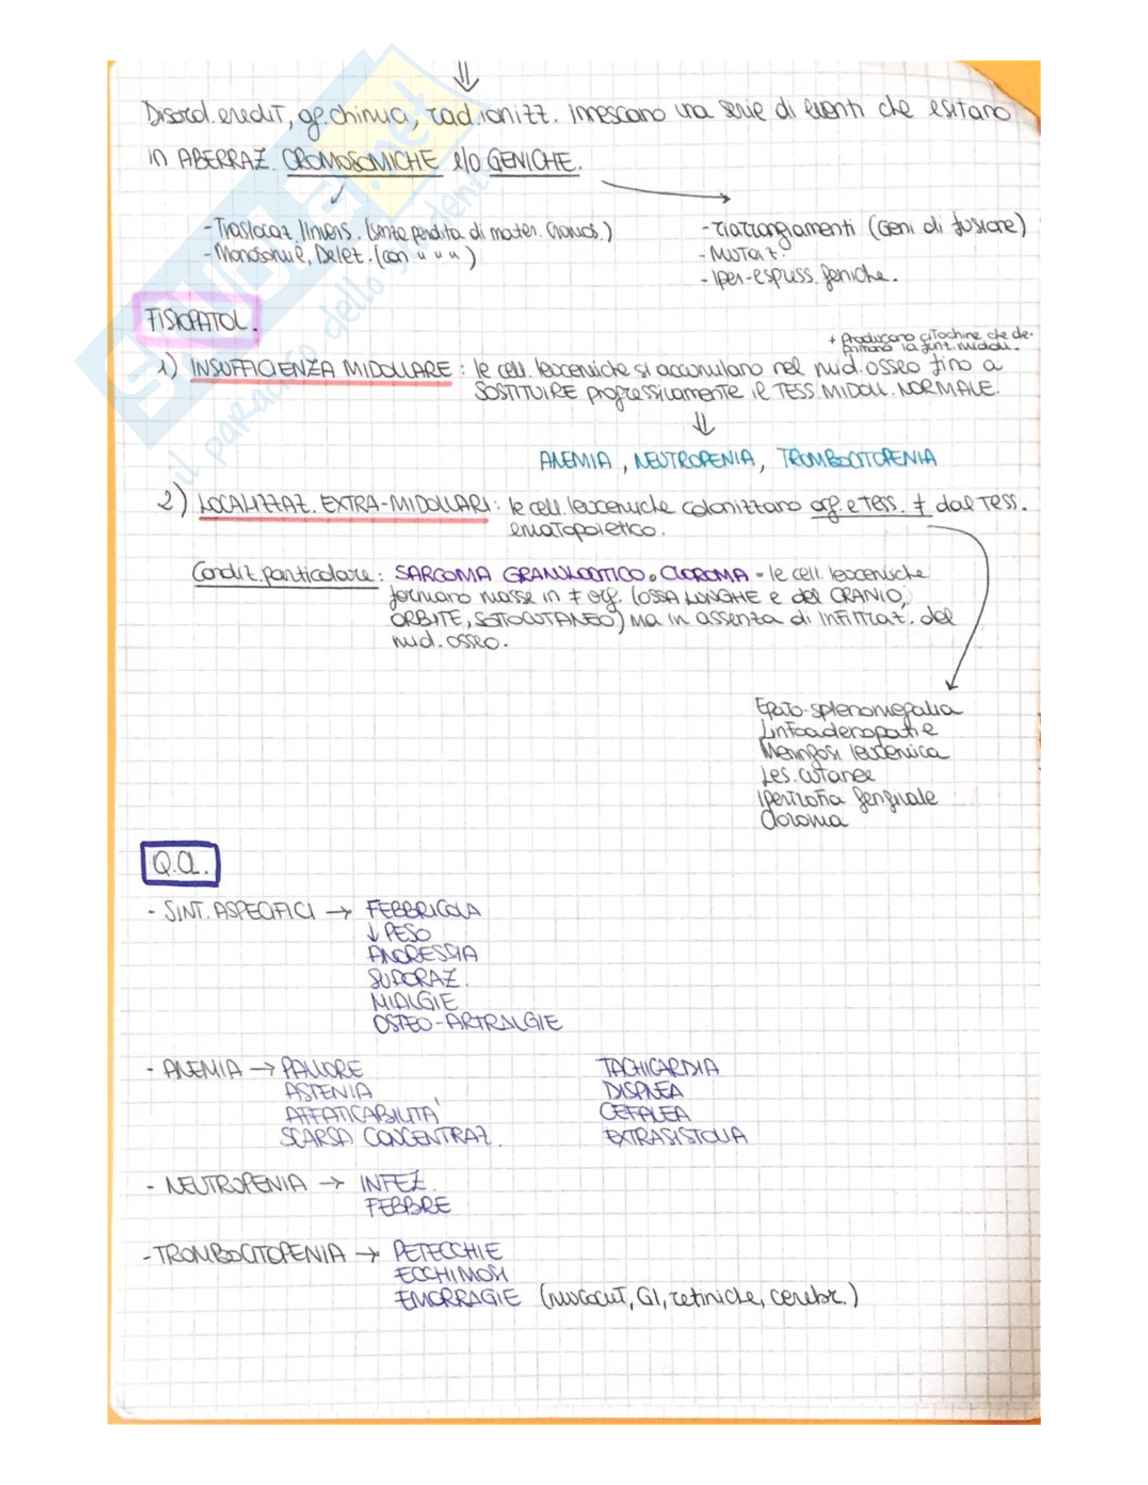 ⇓
Disord. eredit, ag. chimici, rad. ionizz. innescano una serie di eventi che esitano
in ABERRAZ. CROMOSOMICHE e/o GENICHE.
- Traslocaz./Invers. (senza perdita di mater. cromos.)
- Monosomie, Delet. (con " " " )
- riarrangiamenti (Geni di fusione)
- Mutaz.
- Iper-espress. geniche.
FISIOPATOL.
+ Producono citochine che de-
primono la funz. midoll.
1) INSUFFICIENZA MIDOLLARE : le cell. leucemiche si accumulano nel mid. osseo fino a
SOSTITUIRE progressivamente il TESS. MIDOLL. NORMALE.
⇓
ANEMIA, NEUTROPENIA, TROMBOCITOPENIA
2) LOCALIZZAZ. EXTRA-MIDOLLARI : le cell. leucemiche colonizzano org. e Tess. ≠ dal Tess.
ematopoietico.
Condiz. particolare : SARCOMA GRANULOCITICO o CLOROMA - le cell. leucemiche
formano masse in ≠ org. (OSSA LUNGHE e del CRANIO,
ORBITE, SOTTOCUTANEO) ma in assenza di infiltraz. del
mid. osseo.
Epato-splenomegalia
Linfoadenopatie
Meningosi leucemica
Les. cutanee
Ipertrofia gengivale
Cloroma
Q.CL.
- SINT. ASPECIFICI → FEBBRICOLA
↓ PESO
ANORESSIA
SUDORAZ.
MIALGIE
OSTEO-ARTRALGIE
- ANEMIA → PALLORE TACHICARDIA
ASTENIA DISPNEA
AFFATICABILITÀ CEFALEA
SCARSA CONCENTRAZ. EXTRASISTOLIA
- NEUTROPENIA → INFEZ.
FEBBRE
- TROMBOCITOPENIA → PETECCHIE
ECCHIMOSI
EMORRAGIE (mucocut, GI, retiniche, cerebr.)
SKUOLA.net
il paradiso dello studente